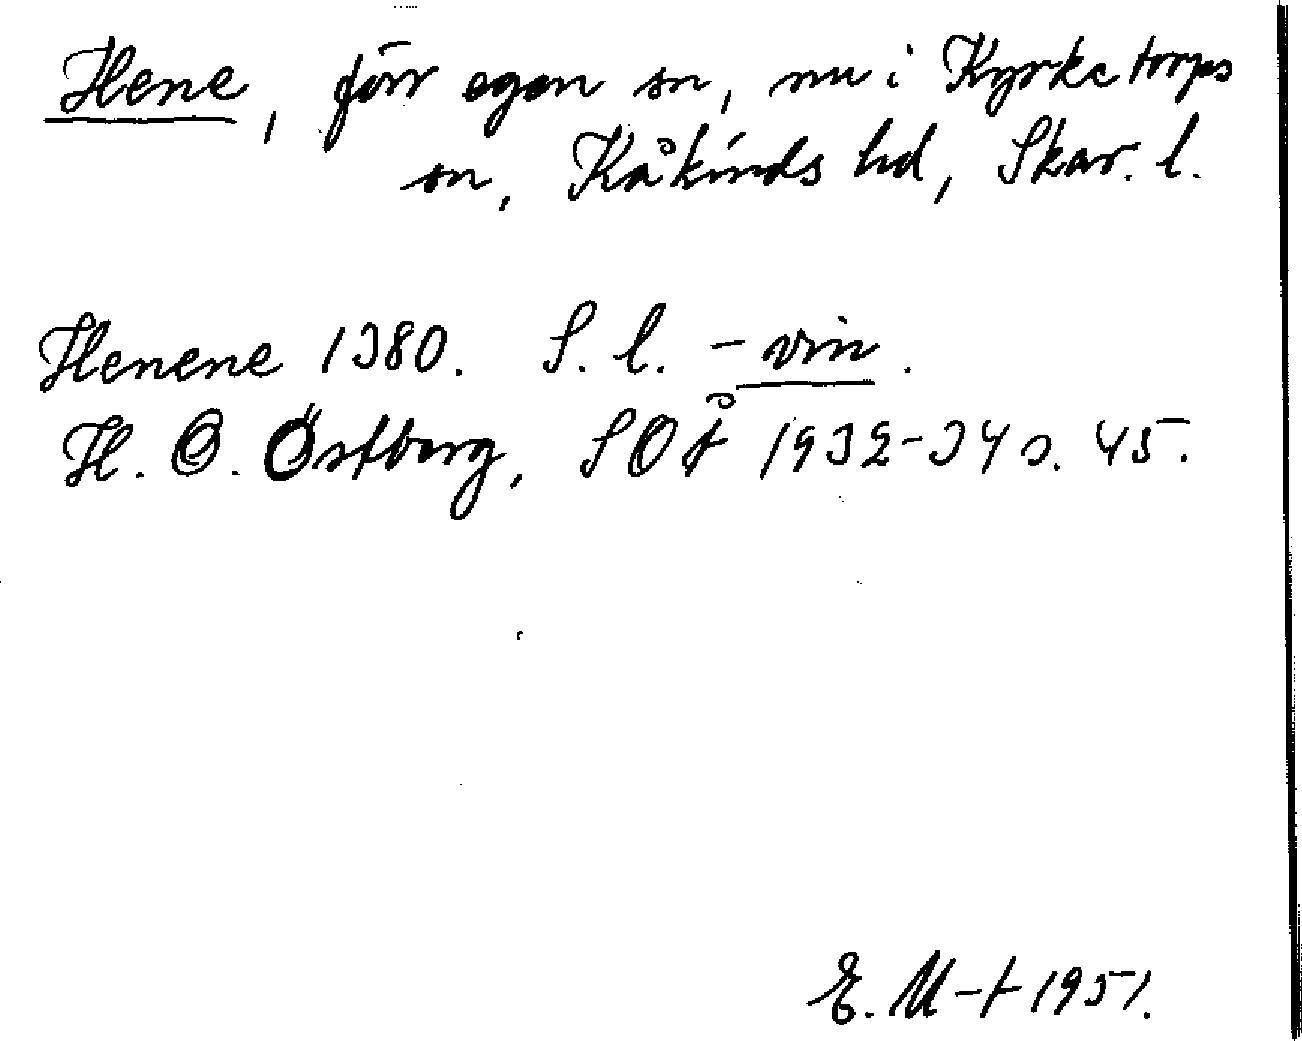 Hene, förr egen sn, nu i Kyrketorps
sn, Kåkinds hd, Skar. l.
Henene 1380. S. l. -vin.
H. O. Östberg, SOÅ 1932-34 s. 45.
E. M-t 1951.